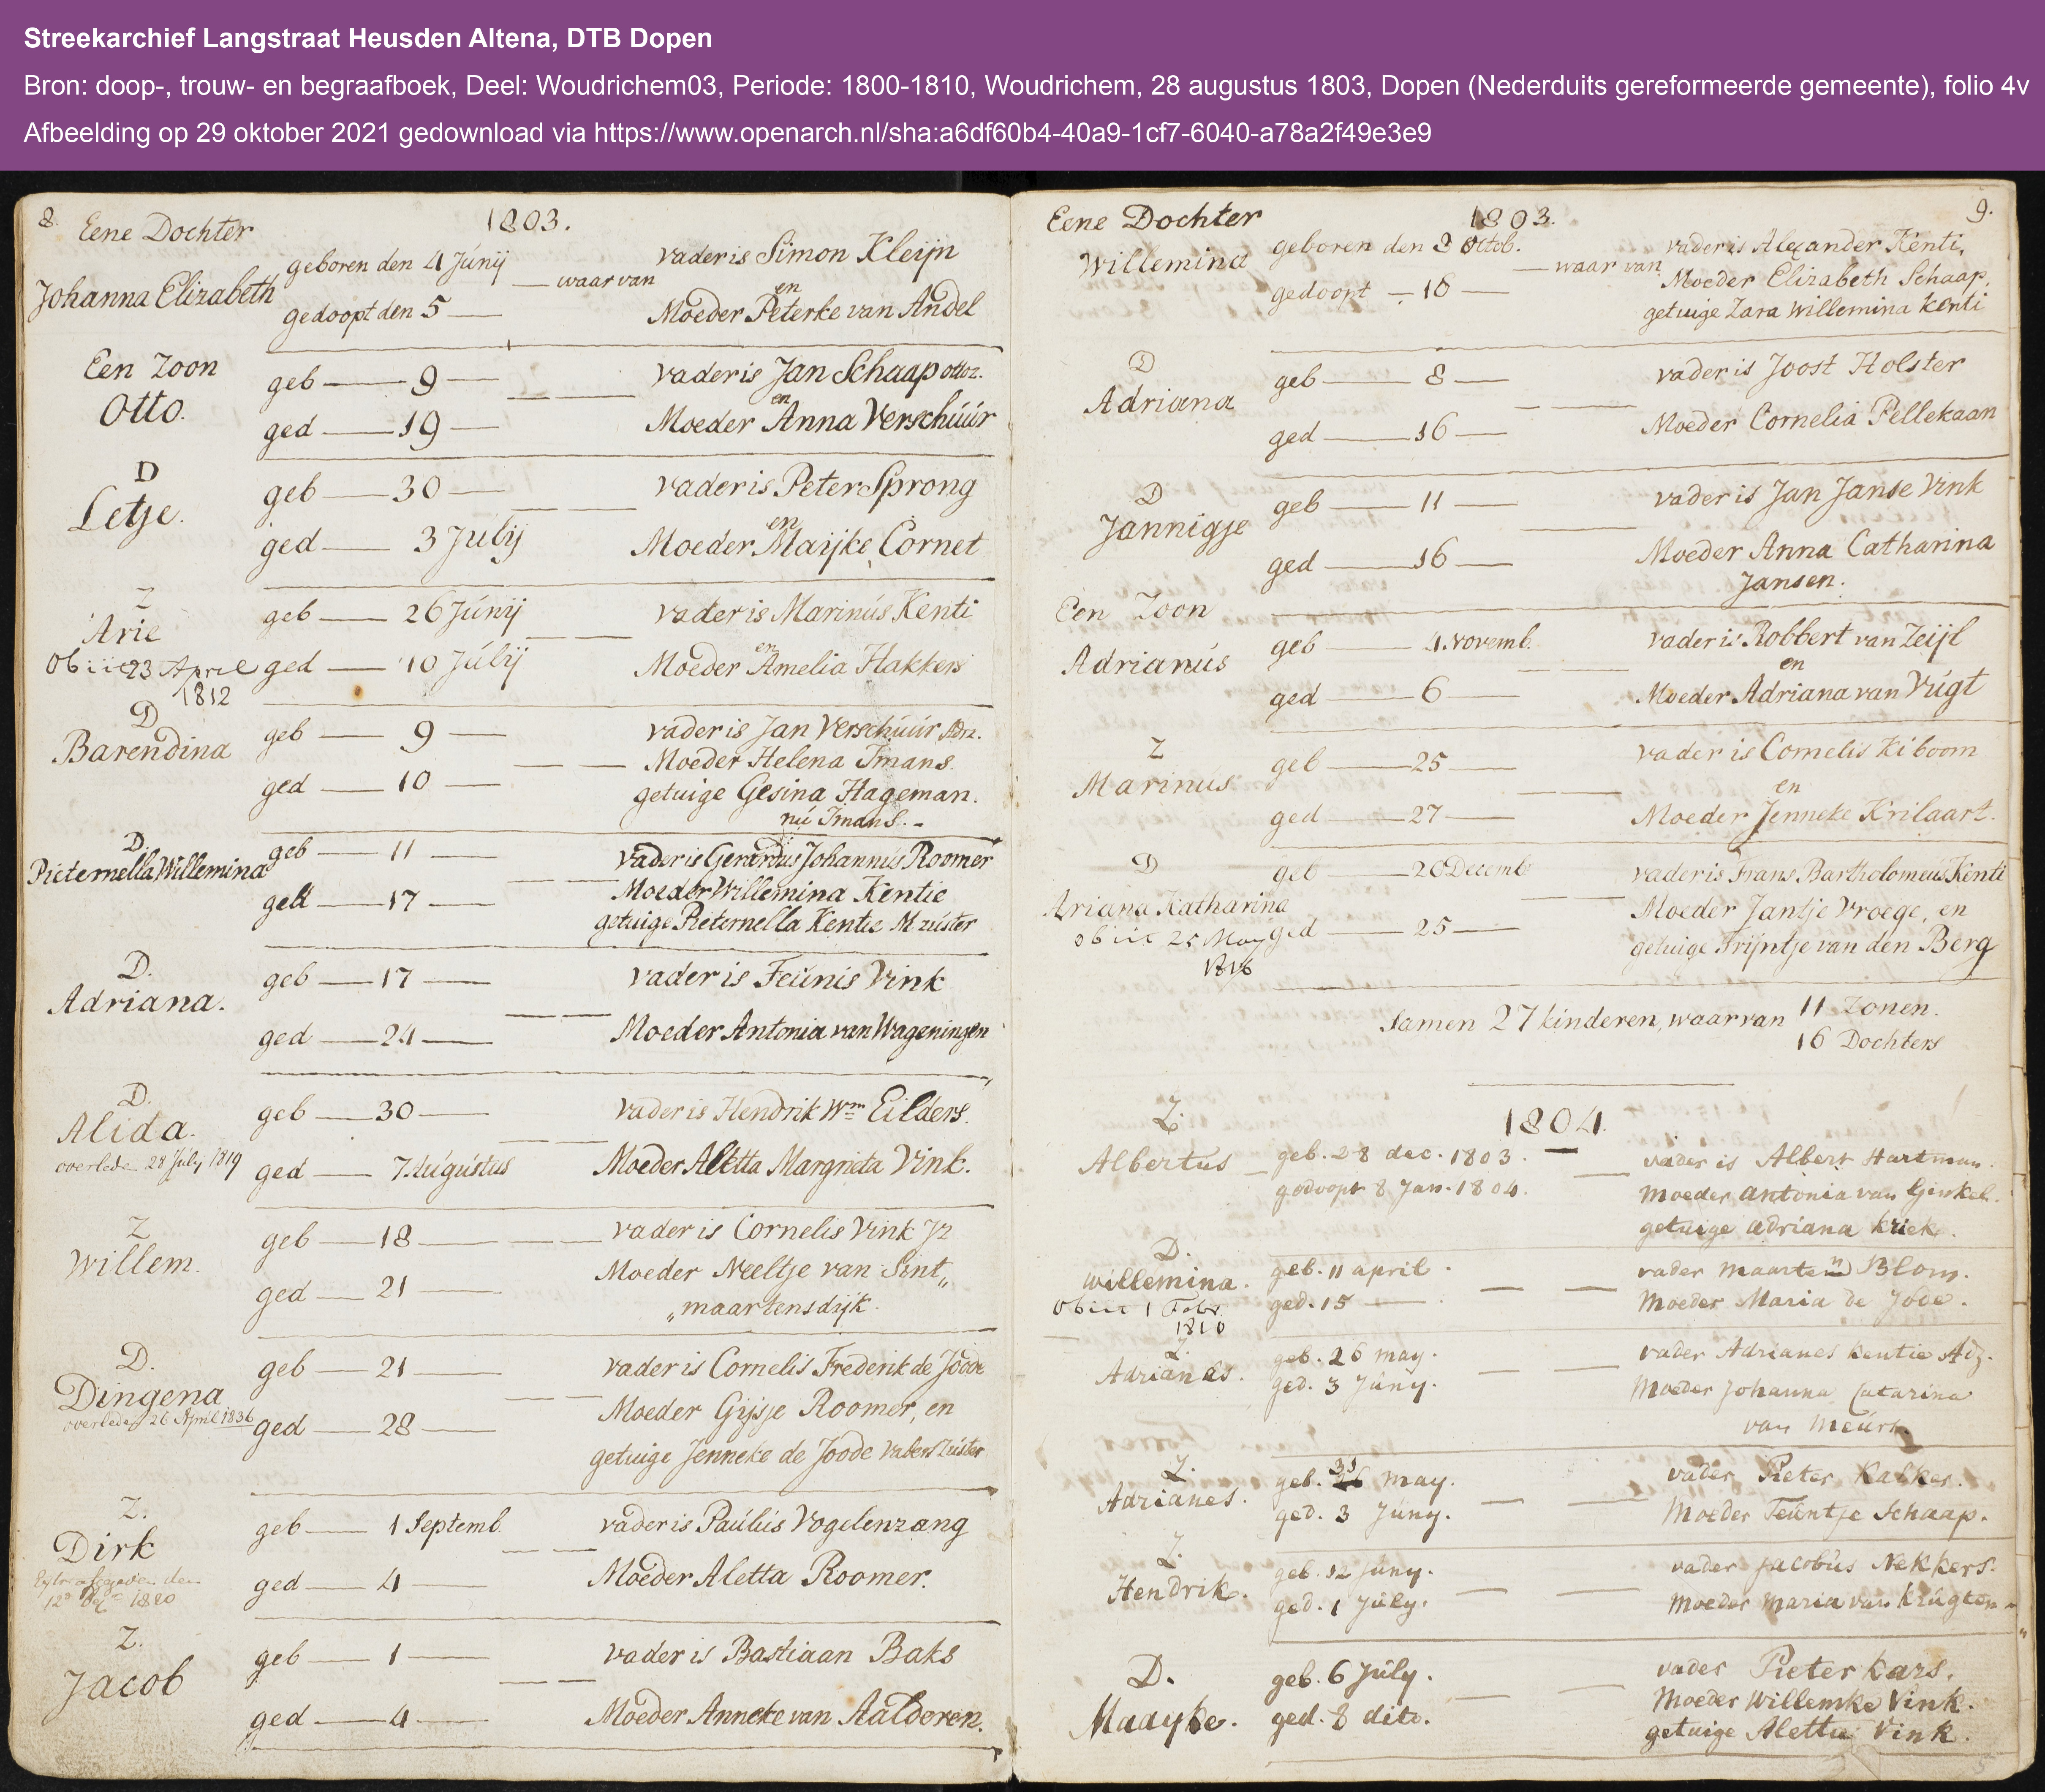 Streekarchief Langstraat Heusden Altena, DTB Dopen
Bron: doop-, trouw- en begraafboek, Deel: Woudrichem03, Periode: 1800-1810, Woudrichem, 28 augustus 1803, Dopen (Nederduits gereformeerde gemeente), folio 4v
Afbeelding op 29 oktober 2021 gedownload via https://www.openarch.nl/sha:a6df60b4-40a9-1cf7-6040-a78a2f49e3e9
8. Eene Dochter 1803.
Johanna Elizabeth
geboren den 4 Júnij
gedoopt den 5
waar van
vader is Simon Kleijn
en
Moeder Peterke van Andel
Een Zoon
Otto.
geb 9
ged 19
vader is Jan Schaap ottoz.
en
Moeder Anna Verschúúr
D
Letje.
geb 30
ged 3 Júlij
vader is Peter Sprong
en
Moeder Maijke Cornet
Z
Arie
Obiit 23 April
1812
geb 26 Júnij
ged 10 Júlij
vader is Marinús Kenti
en
Moeder Amelia Hakkers
D
Barendina
geb 9
ged 10
vader is Jan Verschúúr Adrz.
Moeder Helena Imans.
getuige Gesina Hageman.
nú Imans.
D.
Pieternella Willemina
geb 11
ged 17
vader is Gerardus Johannús Roomer
Moeder Willemina Kentie
getuige Pieternella Kentie M zúster
D.
Adriana.
geb 17
ged 24
vader is Teúnis Vink
Moeder Antonia van Wageningen
D.
Alida.
overlede 28 Júlij 1819
geb 30
ged 7 Aúgústus
vader is Hendrik Wm Eilders.
Moeder Aletta Margrieta Vink.
Z
Willem.
geb 18
ged 21
vader is Cornelis Vink Jz
Moeder Neeltje van Sint„
„maartensdijk.
D.
Dingena
overleden 26 April 1836
geb 21
ged 28
vader is Cornelis Frederik de Joode
Moeder Gijsje Roomer, en
getuige Jenneke de Joode vaders Zúster
Z.
Dirk
den
1880
geb 1 Septemb.
ged 4
vader is Paúlús Vogelenzang
Moeder Aletta Roomer.
Z.
Jacob
geb 1
ged 4
vader is Bastiaan Baks
Moeder Anneke van Aalderen.
Eene Dochter 1803. 9.
Willemina
geboren den 8 Octob.
gedoopt 18
waar van
vader is Alexander Kenti,
Moeder Elizabeth Schaap,
getuige Zara Willemina Kenti
D
Adriana
geb 8
ged 16
vader is Joost Holster
Moeder Cornelia Pellekaan
D
Jannigje
geb 11
ged 16
vader is Jan Janse Vink
Moeder Anna Catharina
Jansen.
Een Zoon
Adrianús
geb 4 Novemb.
ged 6
vader is Robbert van Zeijl
en
Moeder Adriana van Vúgt
Z
Marinús
geb 25
ged 27
vader is Cornelis Kiboom
en
Moeder Jenneke Krilaart.
D
Ariana Katharina
obiit 25 May
1816
geb 20 Decemb
ged 25
vader is Frans Bartholomeús Kenti
Moeder Jantje Vroege, en
getuige Trijntje van den Berg
Samen 27 kinderen, waar van 11 Zonen.
16 Dochters
1804.
Z.
Albertus
geb. 28 dec. 1803.
gedoopt 8 Jan. 1804.
vader is Albert Hartman.
Moeder antonia van Ginkel.
getuige adriana kriek.
D.
willemina.
Obiit 1 Febr.
1810
geb. 11 april.
ged. 15
vader Maarten Blom.
Moeder Maria de Jode.
Z.
Adrianes.
geb. 26 may.
ged. 3 Júny.
vader Adrianes kentie Adz.
Moeder Johanna Catarina
van Meúrs.
Z.
Adrianes.
geb. 31 may.
ged. 3 Júny.
vader Pieter Kalker.
Moeder Teúntje Schaap.
Z.
Hendrik.
geb. 12 Júny.
ged. 1 Júly.
vader Jacobús Nekkers.
Moeder Maria van Krúgten
D.
Maayke.
geb. 6 Júly.
ged. 8 dito.
vader Pieter kars.
Moeder Willemke Vink.
getuige Aletta Vink.